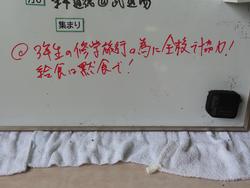 集まり
@ 3年生の修学旅行の為に全校で協力!
給食は黙食で!